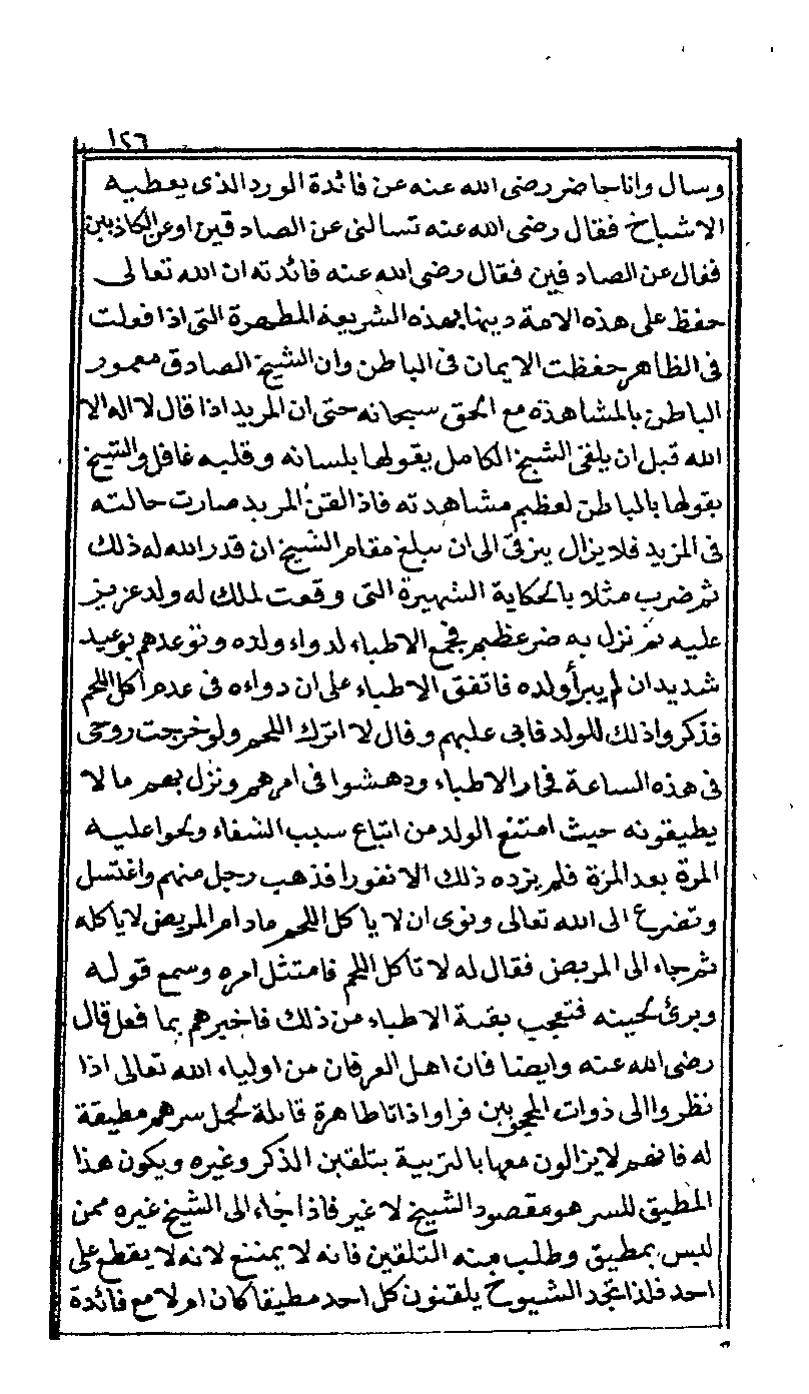 ١٢٦
وسال وانا حاضر رضى الله عنه عن فائدة الورد الذى يعطيه
الاشياخ فقال رضى الله عنه تسالنى عن الصادقين اوعن الكاذبين
فقال عن الصادقين فقال رضى الله عنه فائدته ان الله تعالى
حفظ على هذه الامة دينها بهذه الشريعة المطهرة التى اذا فعلت
فى الظاهر حفظت الايمان فى الباطن وان الشيخ الصادق معمور
الباطن بالمشاهدة مع الحق سبحانه حتى ان المريد اذا قال لا اله الا
الله قبل ان يلقى الشيخ الكامل يقولها بلسانه وقلبه غافل والشيخ
يقولها بالباطن لعظيم مشاهدته فاذا لقن المريد صارت حالته
فى المزيد فلا يزال يترقى الى ان يبلغ مقام الشيخ ان قدر الله له ذلك
ثم ضرب مثلا بالحكاية الشهيرة التى وقعت لملك له ولد عزيز
عليه ثم نزل به ضر عظيم فجمع الاطباء لدواء ولده وتوعدهم بوعيد
شديد ان لم يبرأ ولده فاتفق الاطباء على ان دواءه فى عدم اكل اللحم
فذكروا ذلك للولد فابى عليهم وقال لا اترك اللحم ولو خرجت روحى
فى هذه الساعة فحار الاطباء ودهشوا فى امرهم ونزل بهم ما لا
يطيقونه حيث امتنع الولد من اتباع سبب الشفاء ولحوا عليه
المرة بعد المرة فلم يزده ذلك الا نفورا فذهب رجل منهم واغتسل
وتضرع الى الله تعالى ونوى ان لا ياكل اللحم مادام المريض لا ياكله
ثم جاء الى المريض فقال له لا تاكل اللحم فامتثل امره وسمع قوله
وبرئ لحينه فتعجب بقية الاطباء من ذلك فاخبرهم بما فعل قال
رضى الله عنه وايضا فان اهل العرفان من اولياء الله تعالى اذا
نظروا الى ذوات المحجوبين فراوا ذاتا طاهرة قابلة لحمل سرهم مطيقة
له فانهم لا يزالون معها بالتربية بتلقين الذكر وغيره ويكون هذا
المطيق للسر هو مقصود الشيخ لا غير فاذا جاء الى الشيخ غيره ممن
ليس بمطيق وطلب منه التلقين فانه لا يمتنع لانه لا يقطع على
احد فلذا تجد الشيوخ يلقنون كل احد مطيقا كان ام لا مع فائدة